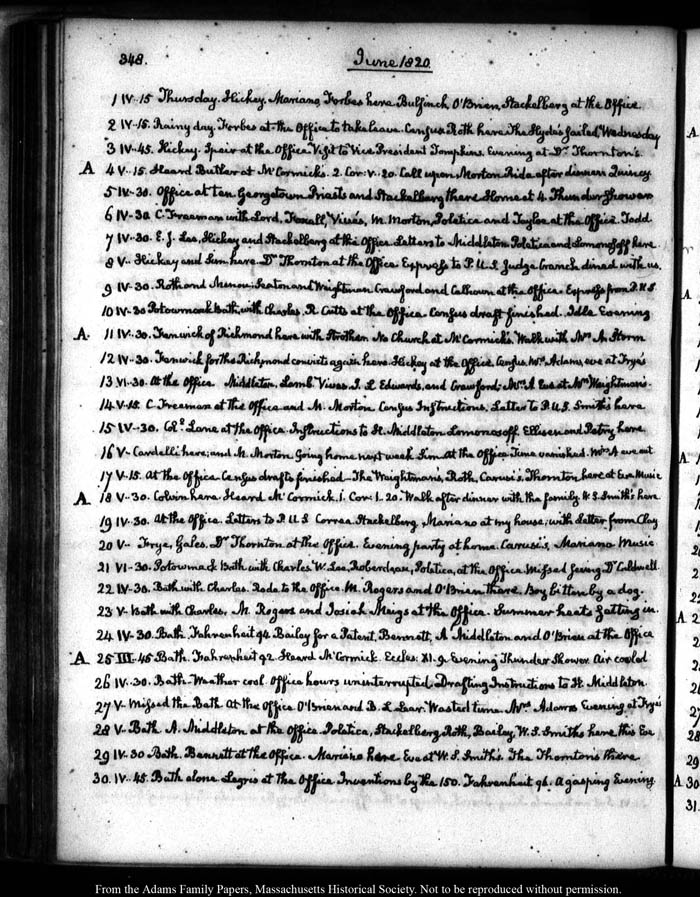 348. June 1820.
1 IV-15 Thursday. Hickey. Mariano, Forbes here Bulfinch, O'Brien, Stackelberg at the Office
2 IV-15. Rainy day. Forbes at the Office to take leave. Census. Roth here. The Hyder sailed, Wednesday
3 IV-45. Hickey. Speir at the Office. Visit to Vice President Tompkins. Evening at Dr Thornton's.
A 4 V-15. Heard Butler at McCormick's. 2. Cor: V. 20. Call upon Morton. Ride after dinner. Quincy
5 IV-30. Office at ten. Georgetown Priests and Stackelberg there. Home at 4. Thunder Showers
6 IV-30. C. Freeman with Lord. Foxall, Vives, M. Morton, Poletica and Taylor at the Office. Todd
7 IV-30. E. J. Lee, Hickey and Stackelberg at the Office. Letters to Middleton. Poletica and Lomonosoff here
8 V- Hickey and here. Dr Thornton at the Office. Express to P. U. S. Judge Cranch dined with us.
9 IV-30. Roth and Menou. Seaton and Weightman. Crawford and Calhoun at the Office. Express from P. U. S
10 IV-30 Potowmack Bath, with Charles. R. Cutts at the Office. Census draft finished. Idle Evening
A. 11 IV-30. Fenwick of Richmond here with Strother. No Church at McCormick's. Walk with Mrs A. Storm
12 IV-30. Fenwick for the Richmond convicts again here. Hickey at the Office. Census. Mrs Adams, eve at Frye's
13 VI-30. At the Office Middleton, Lamb. Vives. J. L Edwards, and Crawford. Mrs A Eve at Mrs Weightman's.
14 V-15. C. Freeman at the Office and M. Morton Census Instructions. Letter to P. U. S. Smith's here
15 IV-30. Coll Lane at the Office. Instructions to H. Middleton Lomonosoff Ellisen and Petry here
16 V- Cardelli here; and M. Morton Going home next week. Sim. At the Office Time vanished. Mrs A eve out
17 V-15. At the Office Census drafts finished - The Weightman's, Roth, Carusi's, Thornton here at Eve Music
A 18 V-30. Colvin here. Heard McCormick. 1. Cor: 1. 20. Walk after dinner with the family. W S. Smith's here
19 IV-30. At the Office. Letters to P. U S Correa Stackelberg, Mariano at my house, with letter from Clay
20 V- Frye, Gales. Dr Thornton at the Office. Evening party at home. Carusi's, Mariano Music
21 VI-30. Potowmack Bath with Charles. W. Lee, Roberdeau, Poletica, at the Office. Missed seeing Dr Caldwell
22 IV-30. Bath with Charles. Rode to the Office. M. Rogers and O'Brien there. Boy bitten by a dog.
23 V- Bath with Charles, M. Rogers and Josiah Meigs at the Office. Summer heats setting in.
24 IV-30. Bath. Fahrenheit 94. Bailey for a Patent. Bennett, A Middleton and O'Brien at the Office
A 25 III-45 Bath. Fahrenheit 92. Heard McCormick. Eccles: XI. 9. Evening Thunder Shower. Air cooled
26 IV-30. Bath. Weather cool. Office hours uninterrupted. Drafting Instructions to H. Middleton.
27 V- Missed the Bath. At the Office O'Brien and B. L Lear. Wasted time. Mrs Adams Evening at Frye's
28 V- Bath. A. Middleton at the Office. Poletica, Stackelberg, Roth, Bailey, W. S. Smiths here this Eve
29 IV-30 Bath. Bennett at the Office. Mariano here. Eve at W. S. Smith's. The Thorntons there
30. IV-45. Bath alone. Legris at the Office. Inventions by the 150. Fahrenheit 96. A gasping Evening
From the Adams Family Papers, Massachusetts Historical Society. Not to be reproduced without permission.